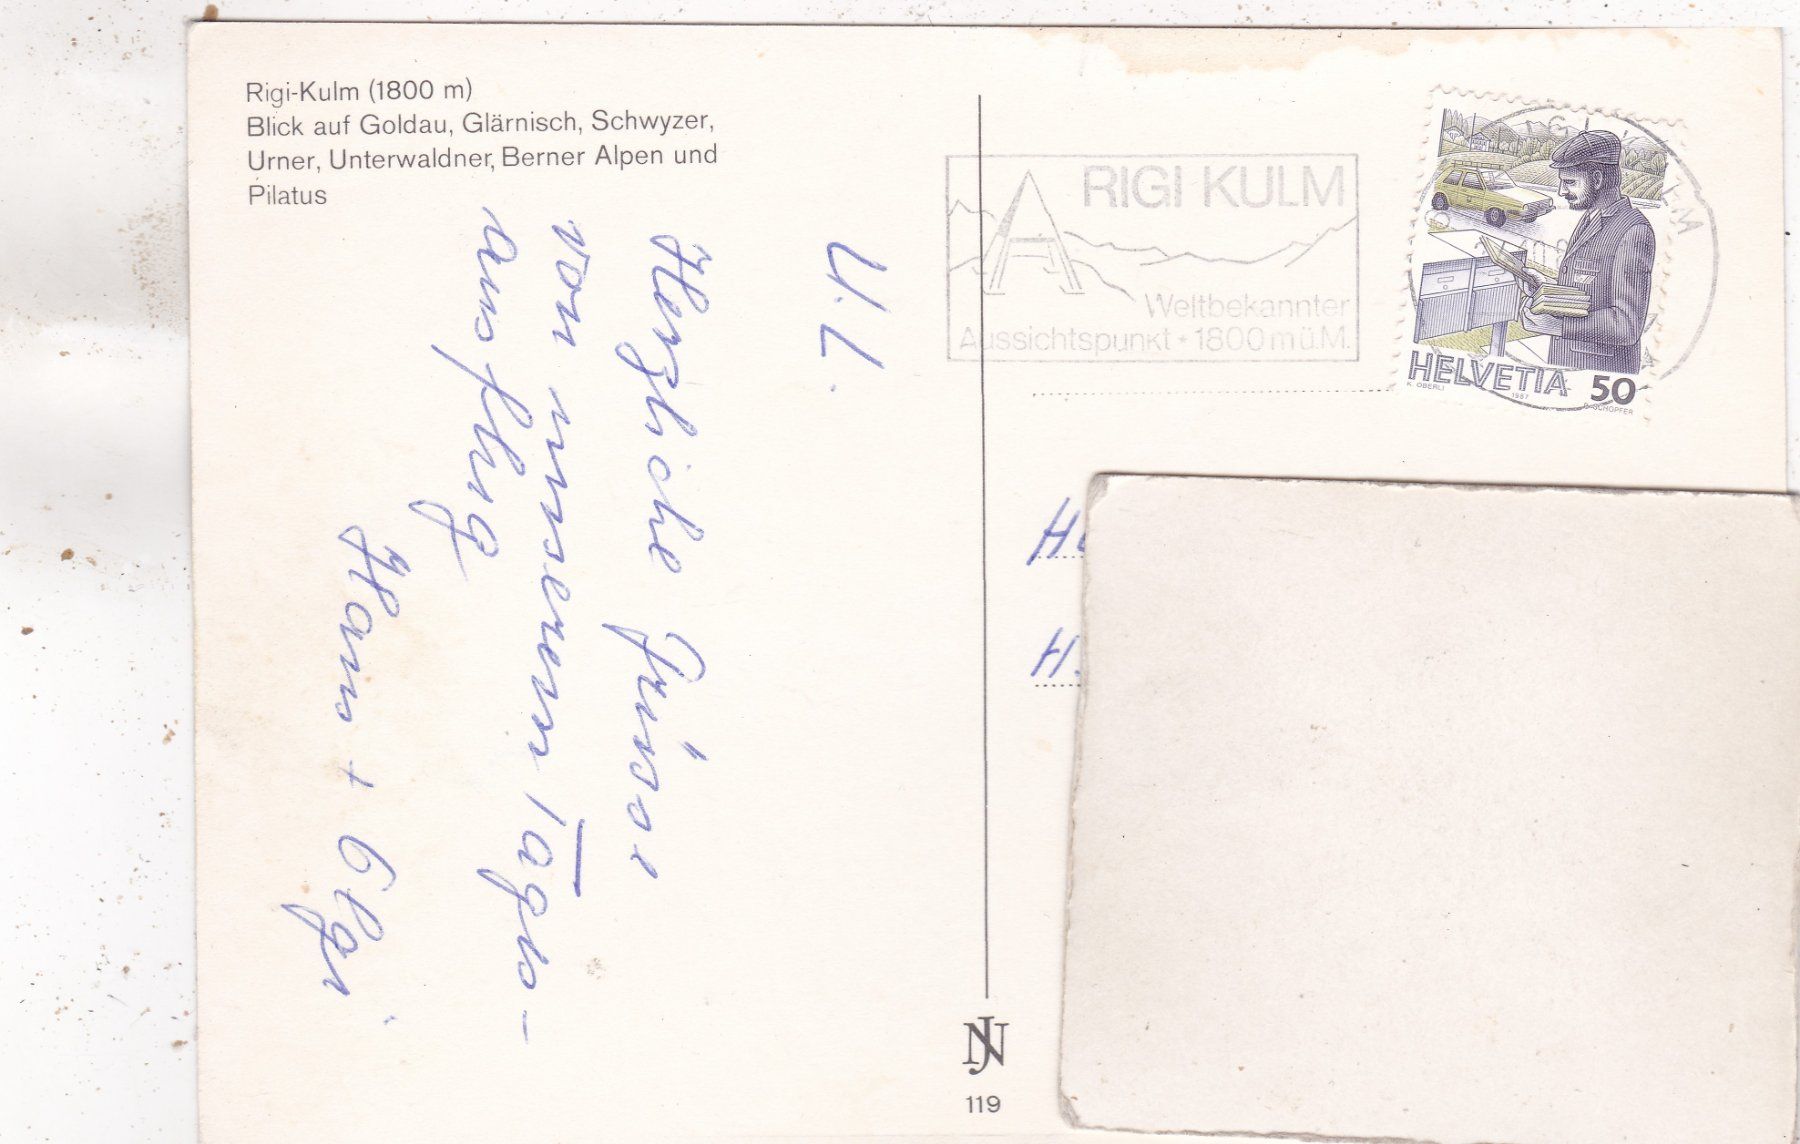 Rigi-Kulm (1800 m)
Blick auf Goldau, Glärnisch, Schwyzer,
Urner, Unterwaldner, Berner Alpen und
Pilatus
U. L.
Herzliche Grüsse
von unserem Tages-
ausflug
Hans +
RIGI KULM
Weltbekannter
Aussichtspunkt * 1800 m ü. M.
HELVETIA 50
K. OBERLI 1987 P. SCHOPFER
H.
NJ
119